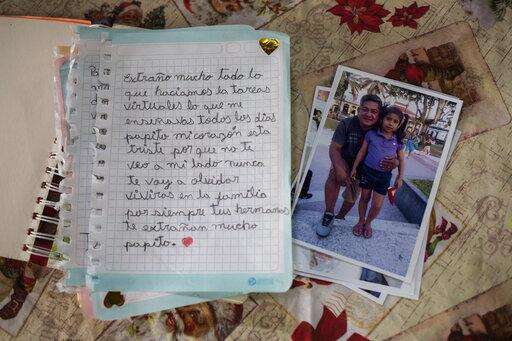 Extraño mucho todo lo
que haciamos la tareas
virtuales lo que me
enseñavas todos los dias
papito mi corazón esta
triste por que no te
veo a mi lado nunca
te voy a olvidar
viviras en la familia
por siempre tus hermanos
te extrañan mucho
papito.